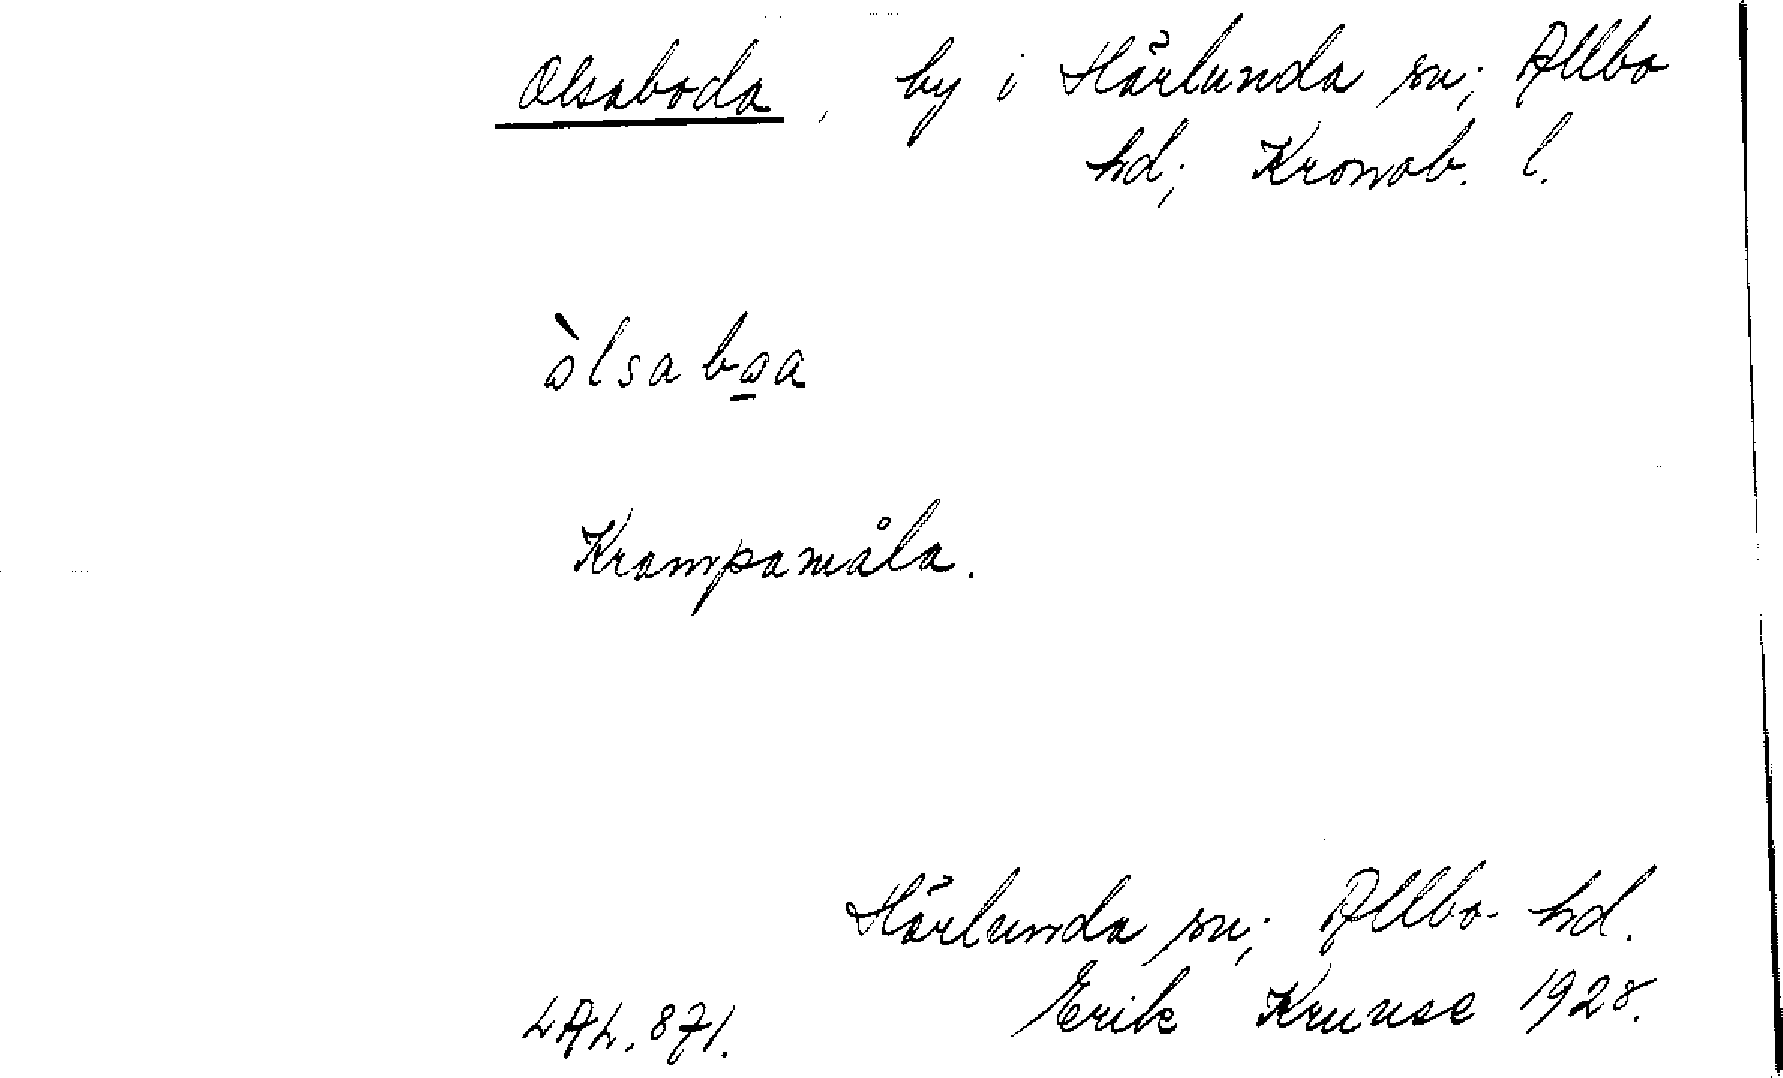 Olsaboda, by i Härlunda sn; Allbo
hd; Kronob. l.
òlsaboa
Krampamåla.
Härlunda sn; Allbo hd.
LAL. 871. Erik Kruuse 1928.